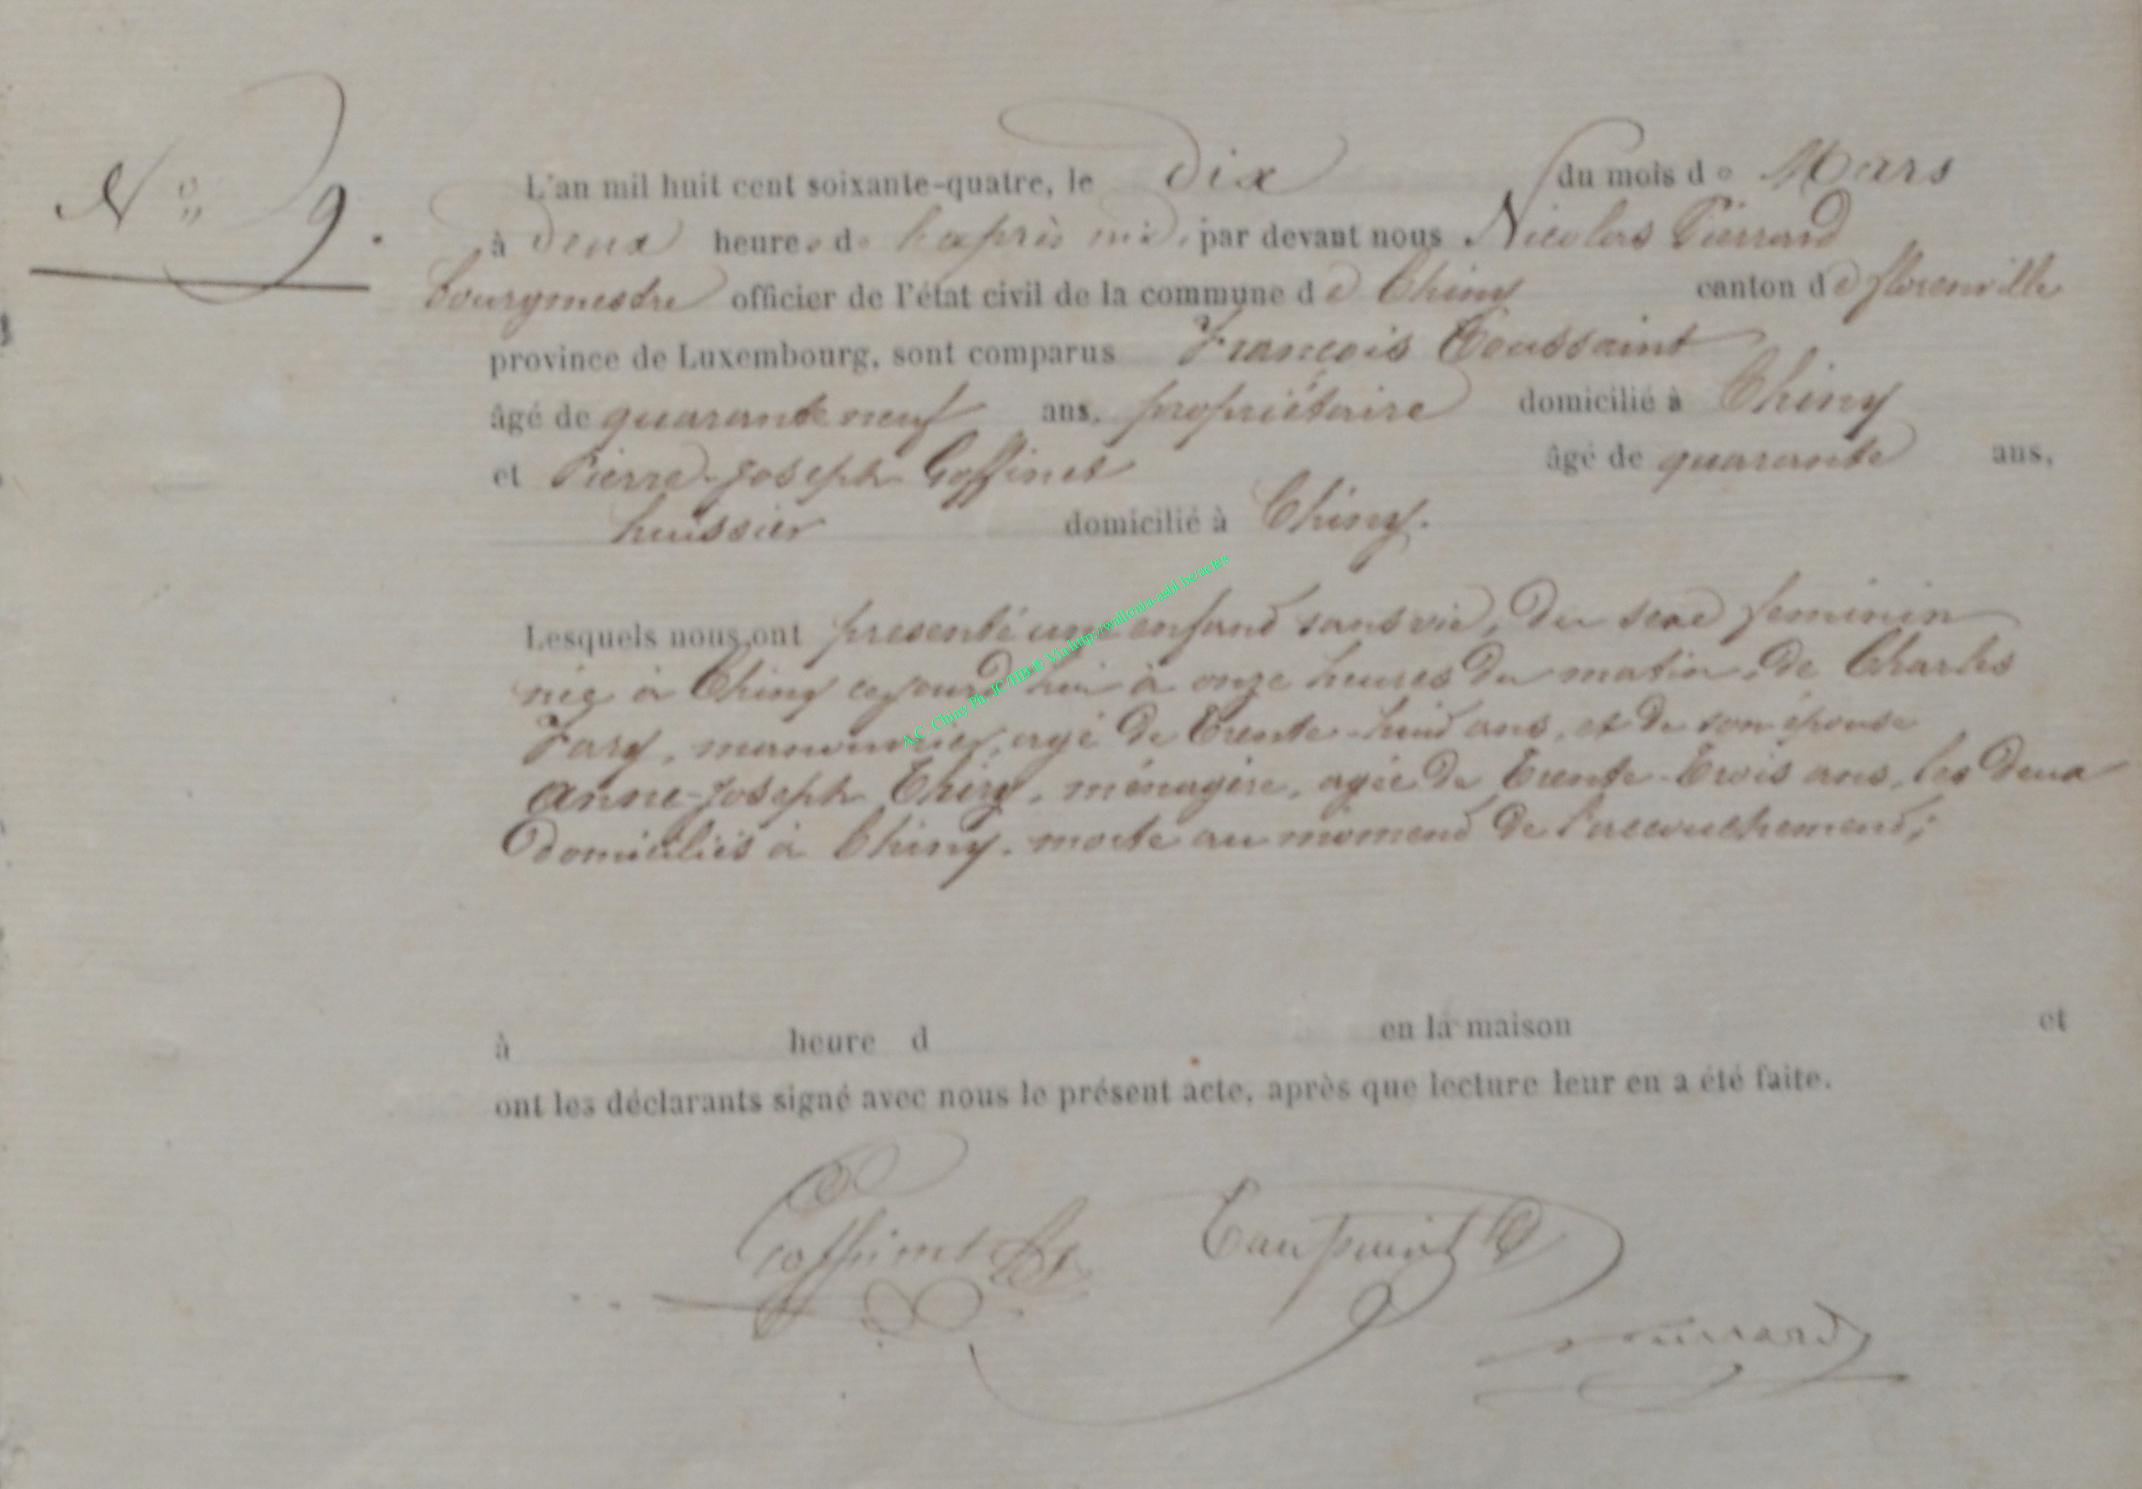 N° 9.
L'an mil huit cent soixante-quatre, le dix du mois de Mars
à deux heures de l'après midi, par devant nous Nicolas Pierrard
bourgmestre officier de l'état civil de la commune de Chiny canton de florenville
province de Luxembourg, sont comparus François Toussaint
âgé de quarante neuf ans, propriétaire domicilié à Chiny
et Pierre-Joseph Goffinet âgé de quarante ans,
huissier domicilié à Chiny.
Lesquels nous ont presenté une enfant sans vie, du sexe feminin
née à Chiny cejourd'hui à onze heures du matin, de Charles
manouvrier, agé de trente-huit ans, et de son épouse
Anne-Joseph Thiry, ménagère, agée de trente-trois ans, les deux
domiciliés à Chiny. morte au moment de l'accouchement;
à heure d en la maison et
ont les déclarants signé avec nous le présent acte, après que lecture leur en a été faite.
Goffinet Toussaint
Pierrard
A.C. Chiny Ph. JC HB & Via http://wallonia-asbl.be/actes